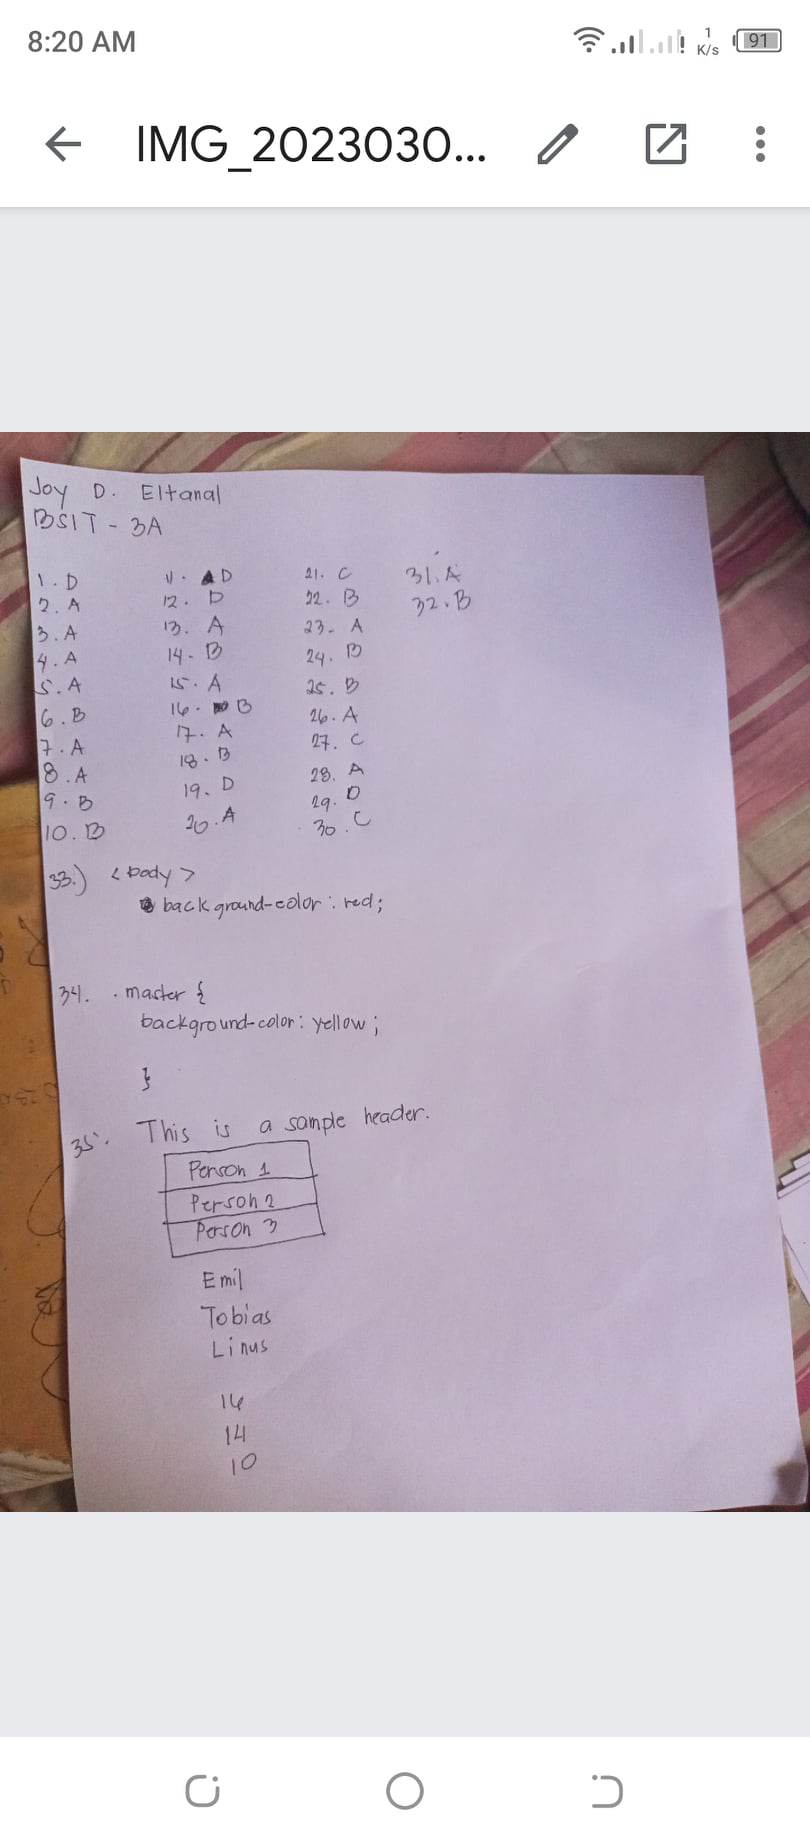 8:20 AM
1
K/s
91
IMG_2023030...
Joy D. Eltanal
BSIT - 3A
1. D
2. A
3. A
4. A
5. A
6. B
7. A
8. A
9. B
10. B
11. D
12. D
13. A
14. B
15. A
16. B
17. A
18. B
19. D
20. A
21. C
22. B
23. A
24. B
25. B
26. A
27. C
28. A
29. D
30. C
31. A
32. B
33.) <body>
background-color: red;
34. .master {
background-color: yellow;
}
35. This is a sample header.
Person 1
Person 2
Person 3
Emil
Tobias
Linus
16
14
10